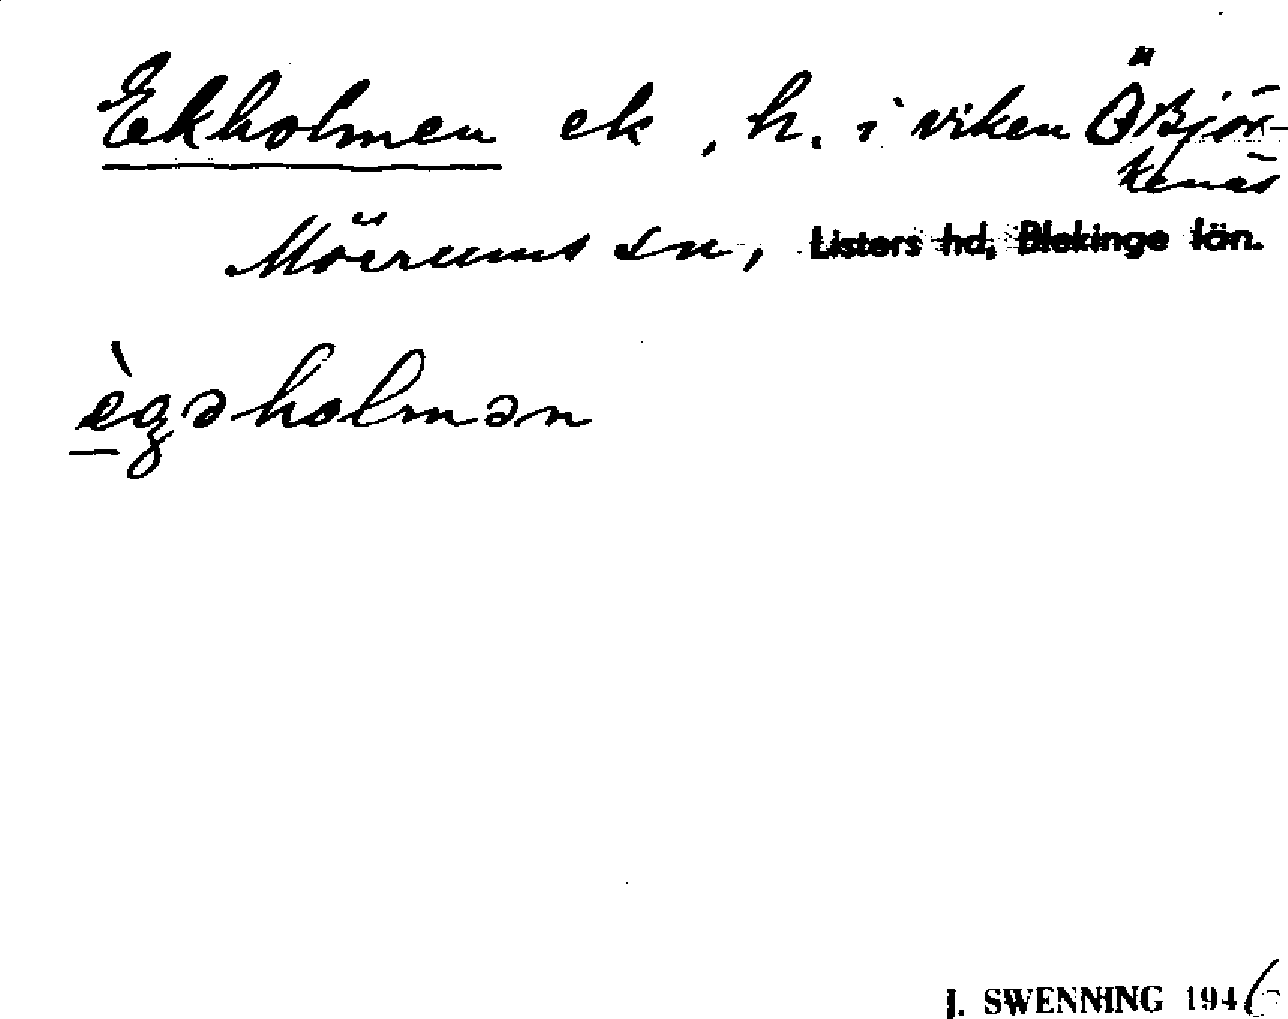 Ekholmen ek, h. i viken Ö Björ-
kenäs
Mörrums sn, Listers hd, Blekinge län.
ègəholmən
J. SWENNING 1946